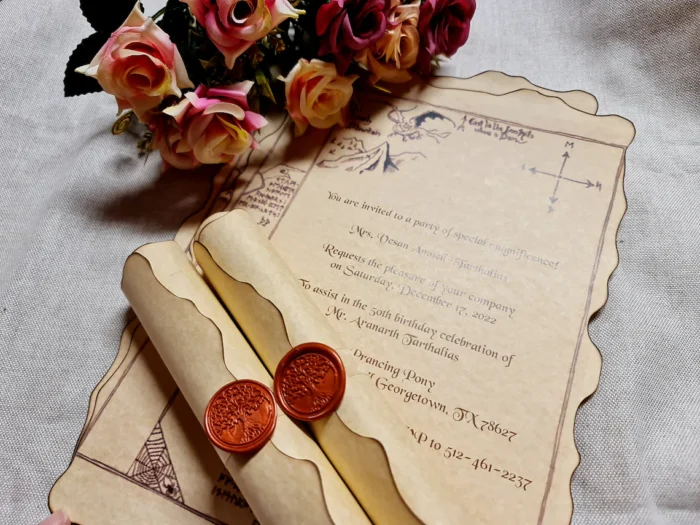 You are invited to a party of special magnificence!
Mrs. Vesan Anneil Tarthalias
Requests the pleasure of your company
on Saturday, December 17, 2022
To assist in the 50th birthday celebration of
Mr. Aranarth Tarthalias
Prancing Pony
Georgetown, TX 78627
to 512-461-2237